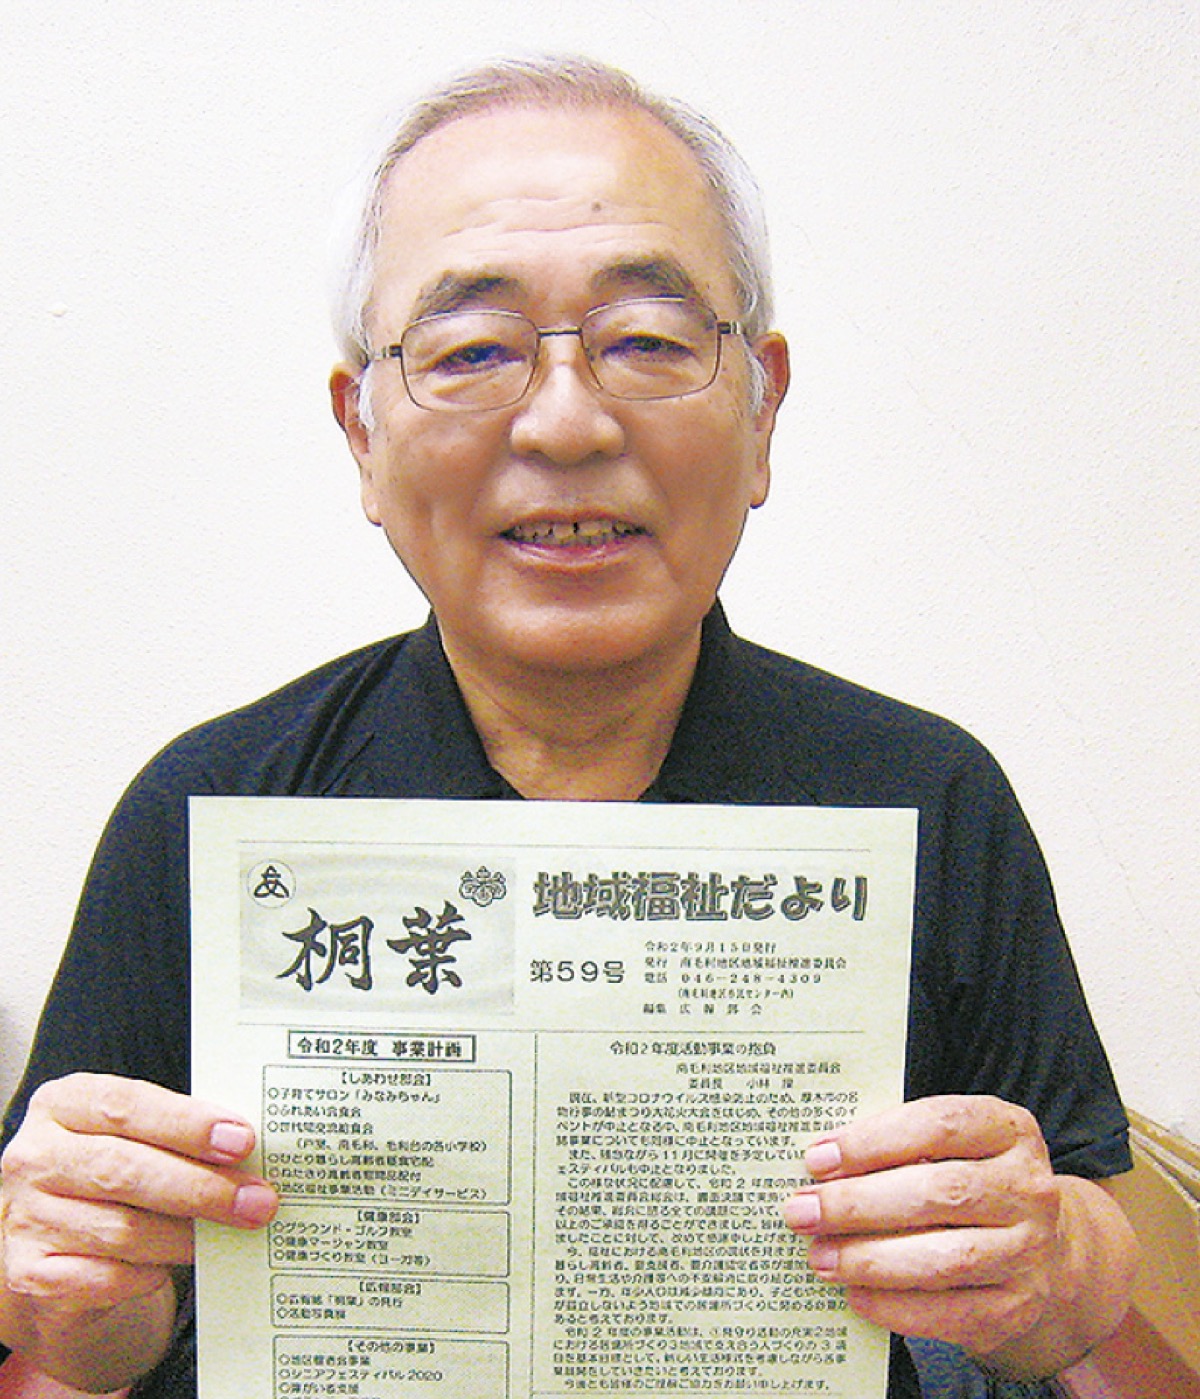 桐葉
地域福祉だより
第59号
令和2年9月15日発行
発行 南毛利地区地域福祉推進委員会
電話 046-248-4309
(南毛利地区市民センター内)
編集 広報部会
令和2年度 事業計画
【しあわせ部会】
○子育てサロン「みなみちゃん」
○ふれあい会食会
○世代間交流給食会
(戸室、南毛利、毛利台の各小学校)
○ひとり暮らし高齢者昼食宅配
○ねたきり高齢者慰問品配付
○地区福祉事業活動(ミニデイサービス)
【健康部会】
○グラウンド・ゴルフ教室
○健康マージャン教室
○健康づくり教室(ヨーガ等)
【広報部会】
○広報紙「桐葉」の発行
○活動写真展
【その他の事業】
○地区敬老会事業
○シニアフェスティバル2020
○障がい者支援
令和2年度活動事業の抱負
南毛利地区地域福祉推進委員会
委員長 小林
現在、新型コロナウイルス感染防止のため、厚木市の名
物行事の鮎まつり大花火大会をはじめ、その他の多くのイ
ベントが中止となる中、南毛利地区地域福祉推進委員会
諸事業についても同様に中止となっています。
また、残念ながら11月に開催を予定していた
ェスティバルも中止となりました。
この様な状況に配慮して、令和2年度の南毛
域福祉推進委員会総会は、書面決議で実施い
その結果、総会に諮る全ての議題について、
以上のご承認を得ることができました。皆様に
ましたことに対して、改めて感謝申し上げます。
今、福祉における南毛利地区の現状を見ますと
暮らし高齢者、要支援者、要介護認定者等が増加
り、日常生活や介護等への不安解消に取り組む必要
ます。一方、年少人口は減少傾向にあり、子どもやその親
が孤立しないよう地域での居場所づくりに努める必要が
あると考えております。
令和2年度の事業活動は、①見守り活動の充実2地域
における居場所づくり3地域で支え合う人づくりの3項
目を基本目標として、新しい生活様式を考慮しながら各事
業展開をしていきたいと考えております。
今後とも皆様のご理解ご協力をお願い申し上げます。